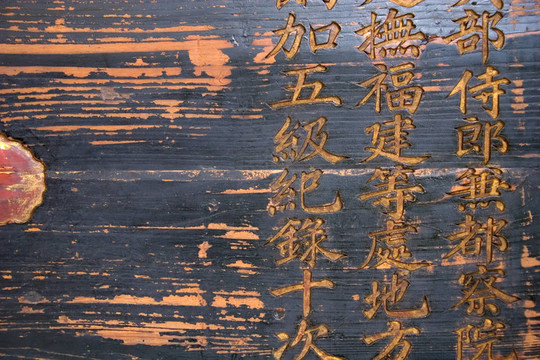 部侍郎兼都察院
撫福建等處地方
加五級紀錄十次